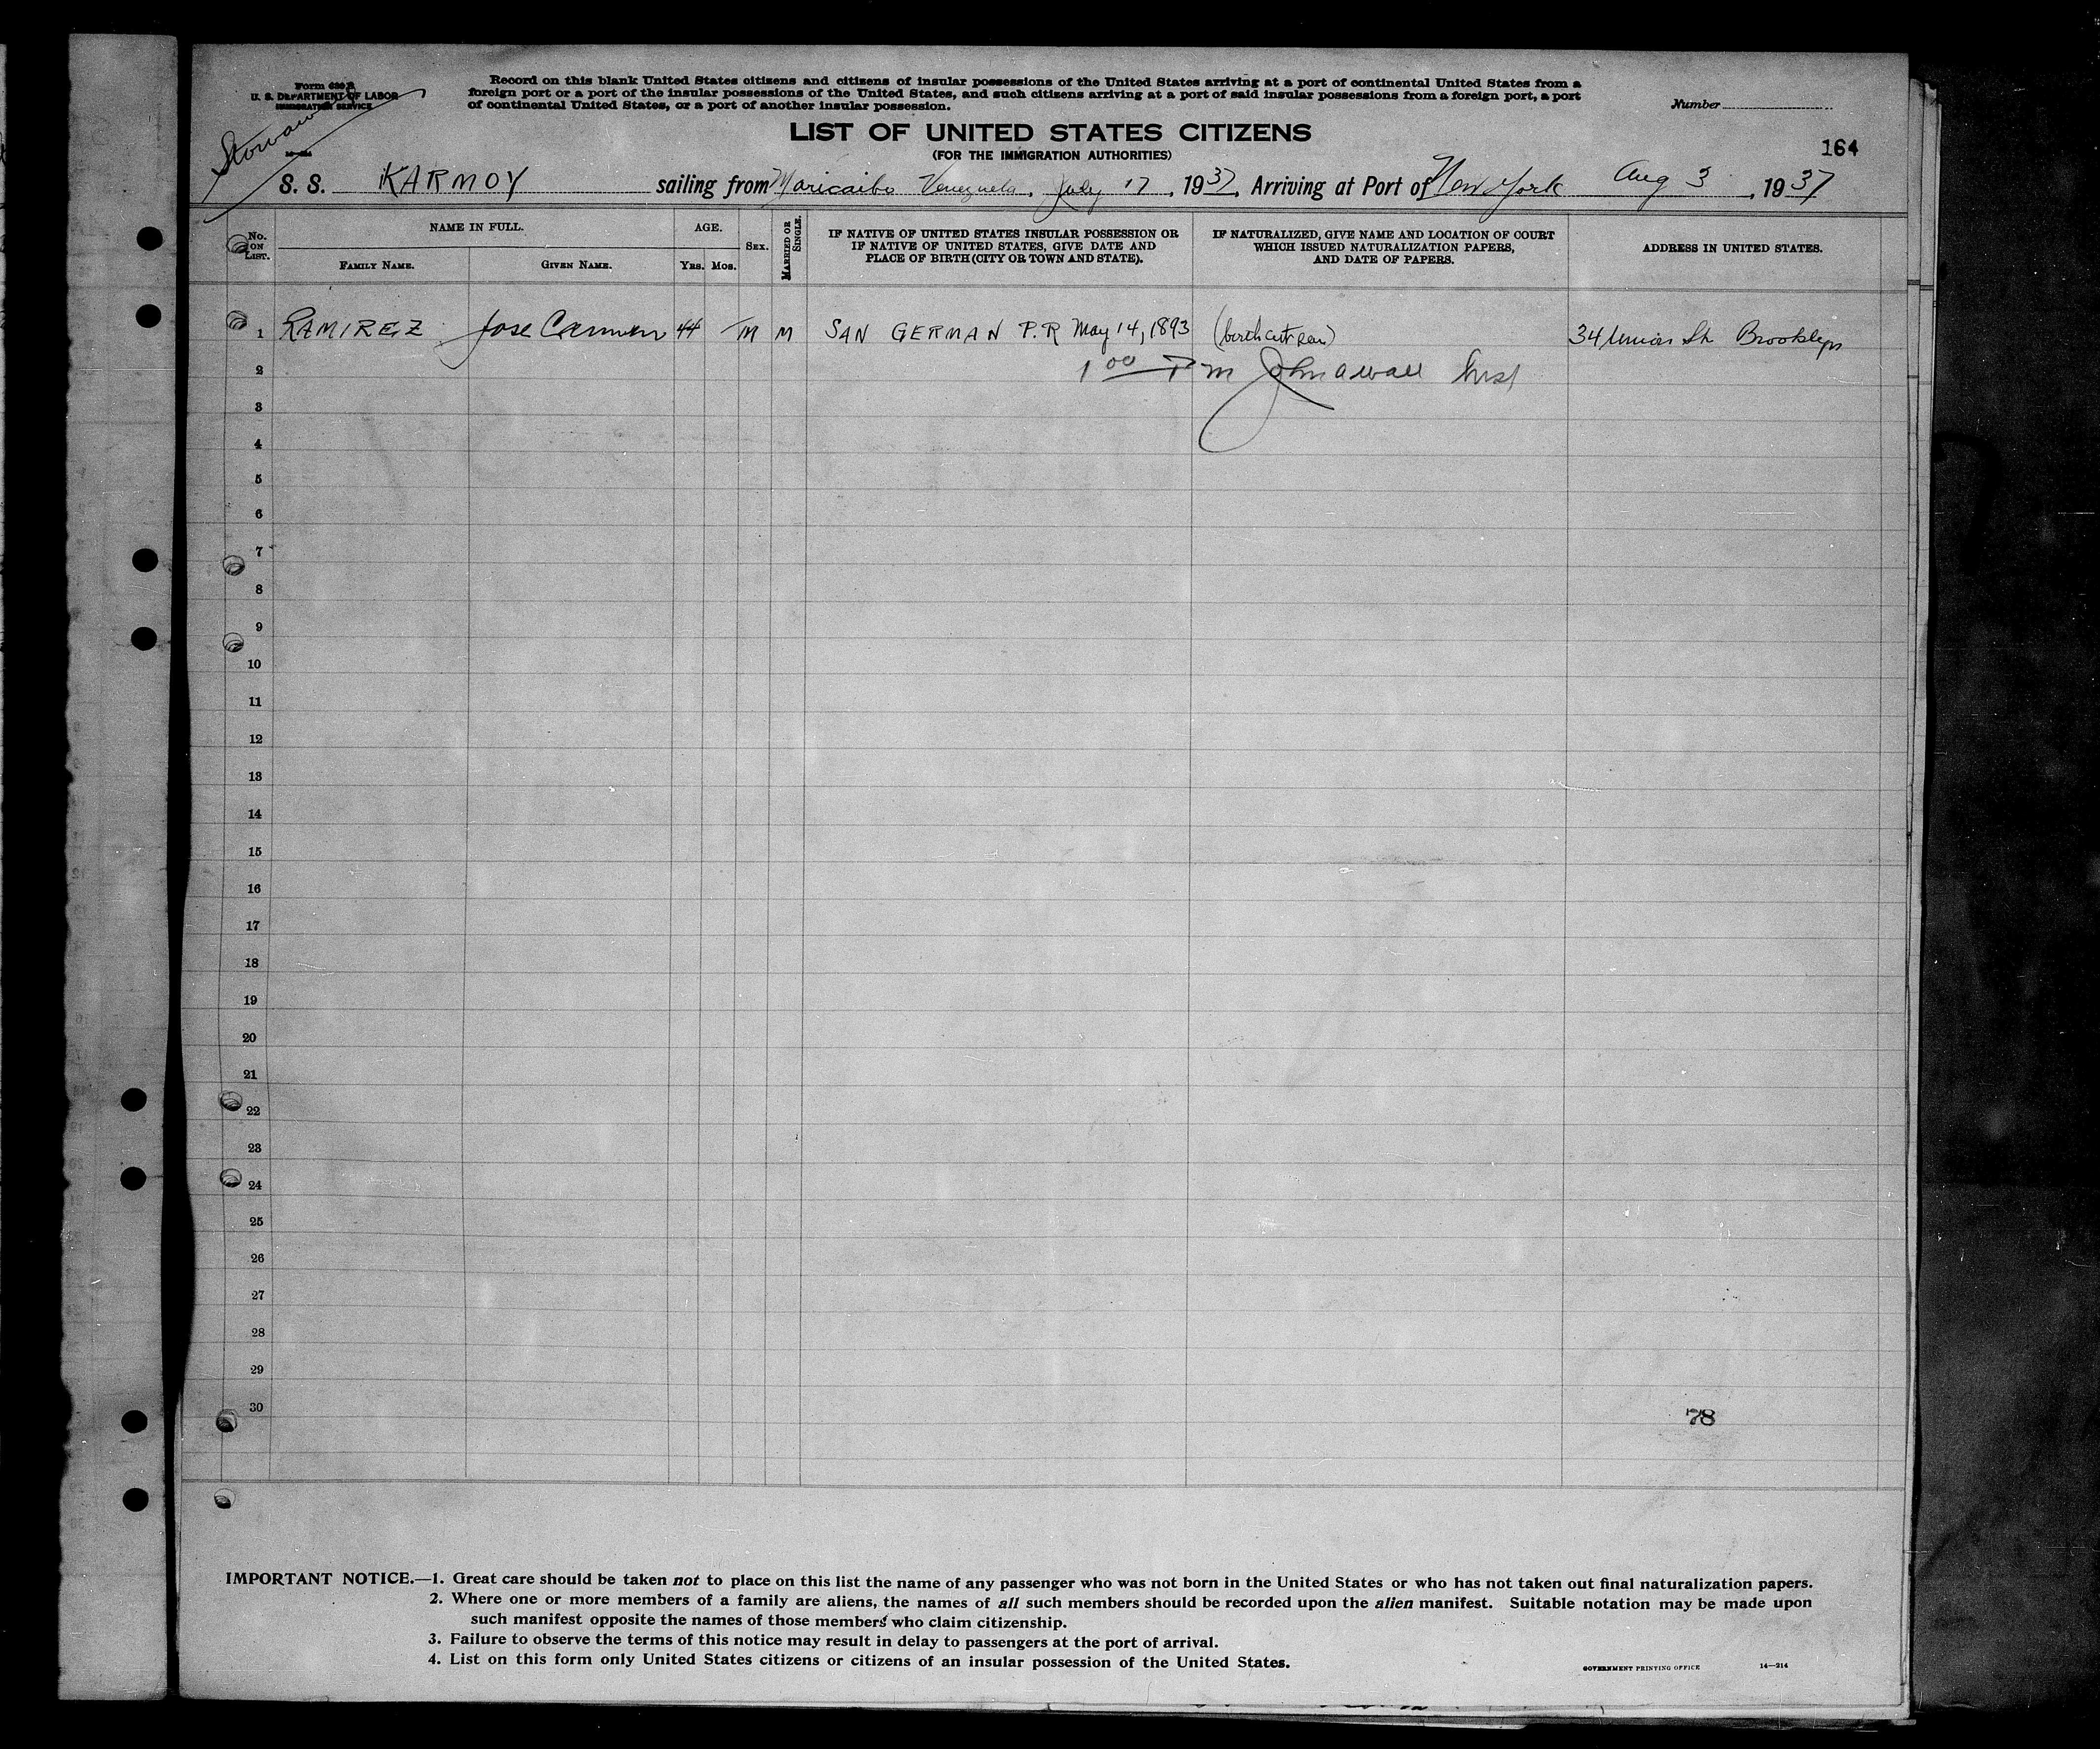 Form 630 B
U. S. DEPARTMENT OF LABOR
IMMIGRATION SERVICE
Record on this blank United States citizens and citizens of insular possessions of the United States arriving at a port of continental United States from a
foreign port or a port of the insular possessions of the United States, and such citizens arriving at a port of said insular possessions from a foreign port, a port
of continental United States, or a port of another insular possession.
Number
Stowaway
LIST OF UNITED STATES CITIZENS
(FOR THE IMMIGRATION AUTHORITIES)
164
S. S. KARMOY sailing from Maricaibo Venezuela, July 17, 1937, Arriving at Port of New York Aug 3, 1937
No. ON LIST.
NAME IN FULL.
FAMILY NAME. GIVEN NAME.
AGE.
YRS. MOS.
SEX.
MARRIED OR SINGLE.
IF NATIVE OF UNITED STATES INSULAR POSSESSION OR
IF NATIVE OF UNITED STATES, GIVE DATE AND
PLACE OF BIRTH (CITY OR TOWN AND STATE).
IF NATURALIZED, GIVE NAME AND LOCATION OF COURT
WHICH ISSUED NATURALIZATION PAPERS,
AND DATE OF PAPERS.
ADDRESS IN UNITED STATES.
1 RAMIREZ Jose Carmen 44 M M SAN GERMAN P.R May 14, 1893 (birth cert seen) 34 Union St Brooklyn
2 1 00 P m John A Wall Insp
3
4
5
6
7
8
9
10
11
12
13
14
15
16
17
18
19
20
21
22
23
24
25
26
27
28
29
30
78
IMPORTANT NOTICE.—1. Great care should be taken not to place on this list the name of any passenger who was not born in the United States or who has not taken out final naturalization papers.
2. Where one or more members of a family are aliens, the names of all such members should be recorded upon the alien manifest. Suitable notation may be made upon
such manifest opposite the names of those members who claim citizenship.
3. Failure to observe the terms of this notice may result in delay to passengers at the port of arrival.
4. List on this form only United States citizens or citizens of an insular possession of the United States.
GOVERNMENT PRINTING OFFICE 14—214